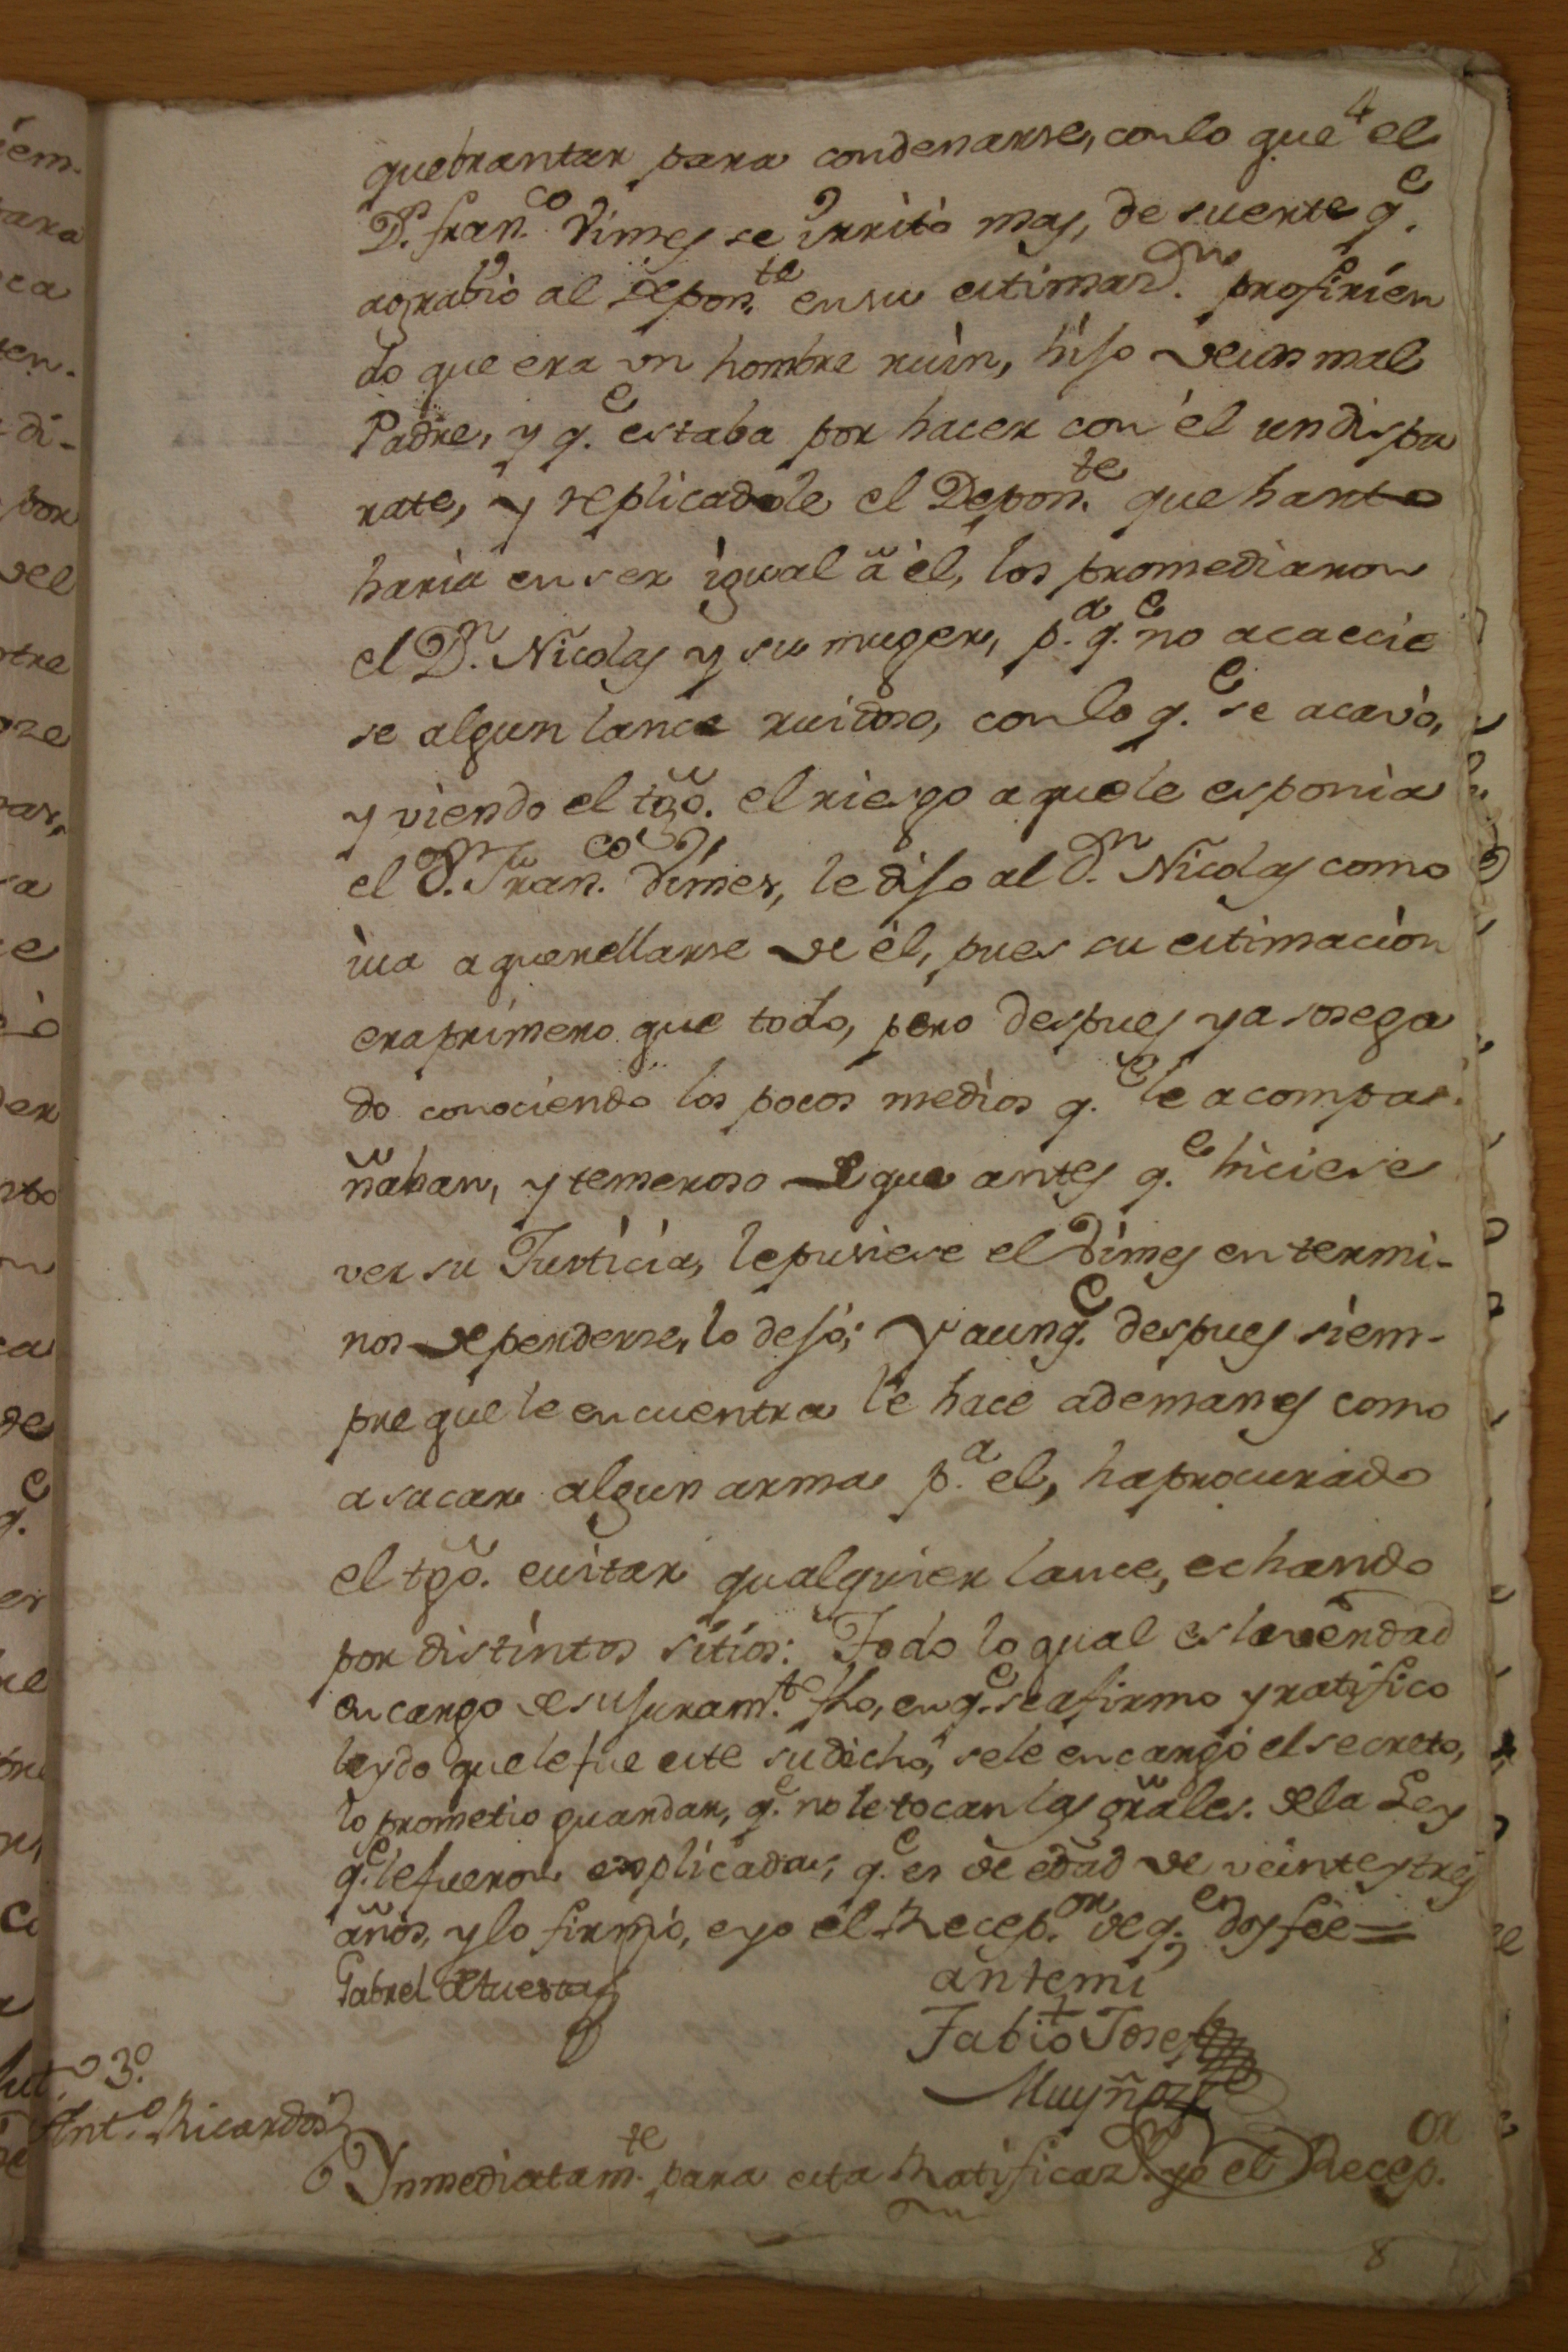 4
quebrantar para condenarse, con lo que el
Dn. Franco. Dimes se irritò mas, de suerte qe.
agrabiò al Deponte. en su estimazn. profirien
do que era un hombre ruin, hijo de un mal
Padre, y qe. estaba por hacer con èl un dispa
rate, y replicadole el Deponte. que harto
harìa en ser igual â èl, los promediaron
el Dn. Nicolas y su muger, pa. qe. no acaecie
se algun lance ruidoso, con lo qe. se acavò,
y viendo el tgõ. el riesgo a que le esponìa
el Dn. Franco. Dimes, le dijo al Dn. Nicolas como
iva a querellarse de èl, pues su estimaciòn
era primero que todo, pero despues ya sosega
do conociendo los pocos medios qe. le acompa-
ñaban, y temeroso de que antes qe. hiciese
ver su Justicia, le pusiese el Dimes en termi-
nos de perderse, lo dejò; Y aunqe. despues siem-
pre que le encuentra le hace ademanes como
a sacar algun arma pa. el, ha procurado
el tgõ. evitar qualquier lance, echando
por distintos sitios: Todo lo qual es la verdad
en cargo de su juramto. fho, en qe. se afirmo y ratifico
leydo que le fue este su dicho, se le encargò el secreto,
lo prometio guardar, qe. no le tocan las gr̃ales. de la Ley
qe. le fueron explicadas; qe. es de edad de veinte y tres
años, y lo firmò, e yo el Recepor. de qe. doy fee=
Gabriel de Cuestas
ante mi
Fabio Josef
Muyñoz
3º.
Anto. Ricardos
Inmediatamte. para esta Ratificazn. yo el Recepor.
8